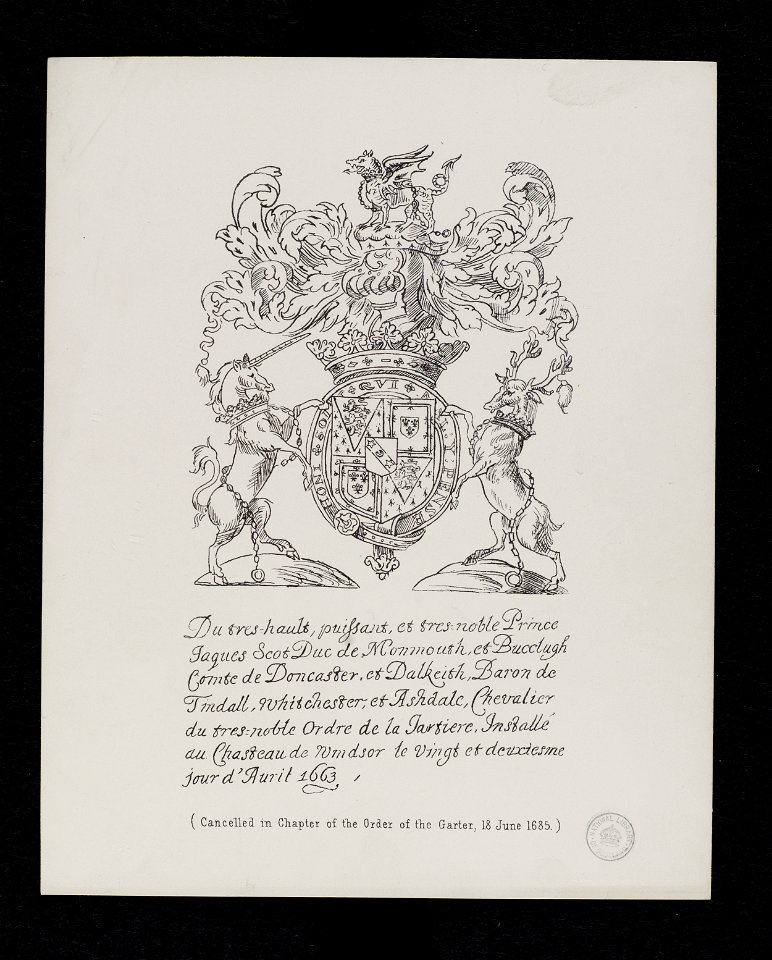 QVI
HONI SO
Y PENSE
Du tres-hault, puissant, et tres-noble Prince
Jaques Scot Duc de Monmouth, et Bucclugh
Comte de Doncaster, et Dalkeith, Baron de
Tindall, Whitchester, et Ashdale, Chevalier
du tres-noble Ordre de la Jartiere, Installé
au Chasteau de Windsor le vingt et deuxiesme
jour d'Auril 1663,
(Cancelled in Chapter of the Order of the Garter, 18 June 1685.)
NATIONAL LIBRARY